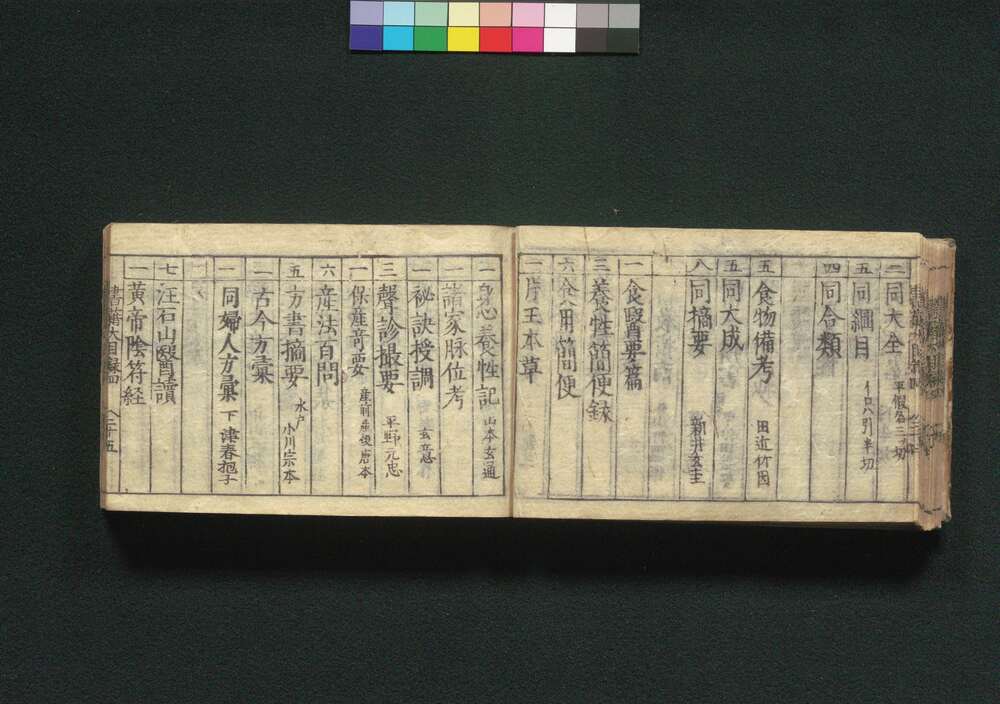 二 同大全 平假名三ツ切
五 同綱目 イロハ引半切
四 同合類
五 食物備考 田近竹因
五 同大成
八 同摘要 新井玄圭
一 食醫要篇
三 養生簡便録
六 食用簡便
一 片玉本草
一 息心養性記 山本玄通
一 諸家脉位考
一 祕訣授調 玄意
三 聲診撮要 平野元忠
一 保産竒要 産前産後唐本
六 産法百問
五 方書摘要 水戸 小川宗本
二 古今方彙
一 同婦人方彙 下津春抱子
七 汪石山醫讀
一 黄帝陰符経
書籍大目録四 八三十五